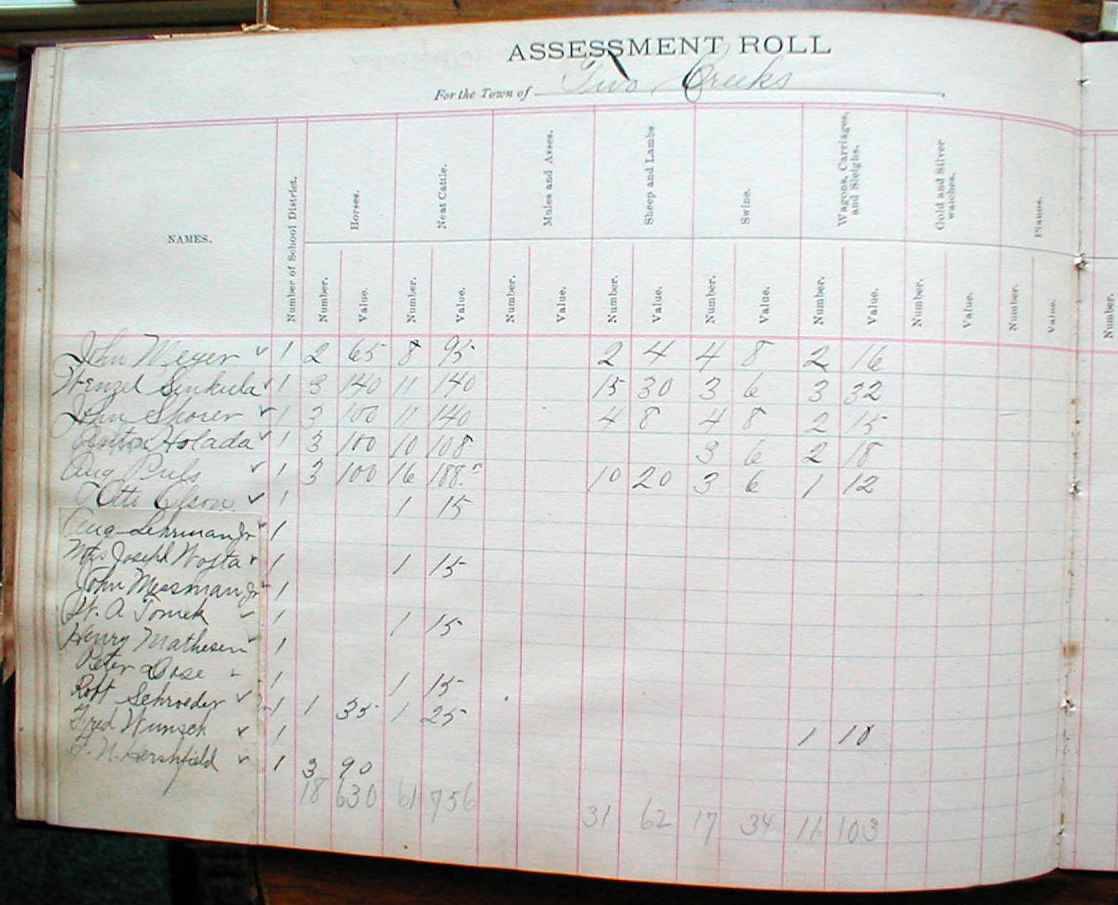 ASSESSMENT ROLL
For the Town of Two Creeks
NAMES. Number of School District. Horses. Neat Cattle. Mules and Asses. Sheep and Lambs Swine. Wagons, Carriages, and Sleighs. Gold and Silver watches. Pianos.
Number. Value. Number. Value. Number. Value. Number. Value. Number. Value. Number. Value. Number. Value. Number. Value. Number.
John Meyer ✓ 1 2 65 8 95 2 4 4 8 2 16
Wenzel Sinkula ✓ 1 3 140 11 140 15 30 3 6 3 32
John Shorer ✓ 1 3 100 11 140 4 8 4 8 2 15
Holada ✓ 1 3 100 10 108 3 6 2 18
Aug Puls ✓ 1 3 100 16 188 10 20 3 6 1 12
Otto Olson ✓ 1 1 15
Aug Lehrman Jr ✓ 1
Mrs Joseph Wojta ✓ 1 1 15
John Messman Jr ✓ 1
W. A Tomek ✓ 1 1 15
Henry Mathesen ✓ 1
Peter Dose ✓ 1 1 15
Robt Schroeder ✓ 1 1 35 1 25
Fred Wunsch ✓ 1 1 10
F. N. Hershfield ✓ 1 3 90
18 630 61 756 31 62 17 34 11 103